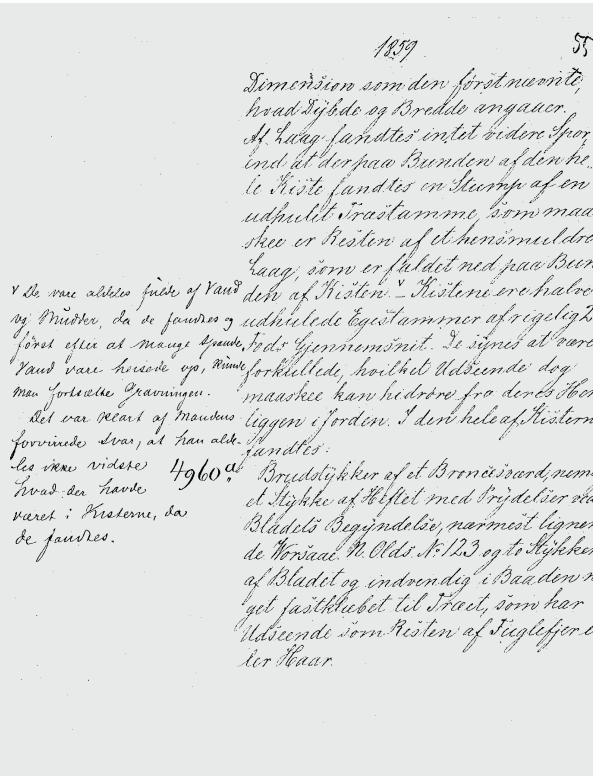 1859
55
Dimension som den först nævnte,
hvad Dybde og Bredde angaaer.
Af Laag fandtes intet videre Spor,
ind at der paa Bunden af den he-
le Kiste fandtes en Stump af en
udhulet Træstamme, som maa
skee er Resten af et hensmuldre
Laag, som er faldet ned paa Bun
den af Kisten. v – Kisterne ere halve
udhulede Egestammer af rigelig 2
Fods Gjennemsnit. De synes at være
forkullede, hvilket Udseende dog
maaskee kan hidröre fra deres Hen
liggen i Jorden. I den hele af Kistern
fandtes:
Brudstykker af et Broncesværd, nem
et Stykke af Heftet med Prydelser ved
Bladets Begyndelse, nærmest lignen
de Worsaae. N. Olds. No 123 og to Stykker
af Bladet og indvendig i Baaden n
get fastklæbet til Træet, som har
Udseende som Resten af Fuglefjer e
ler Haar.
v De vare aldeles fulde af Vand
og Mudder, da de fandtes og
först efter at mange Spande
Vand vare heisede op, kunde
man fortsætte Gravningen.
Det var klart af Mandens
forvirrede Svar, at han alde-
les ikke vidste
hvad der havde
været i Kisterne, da
de fandtes.
4960a.